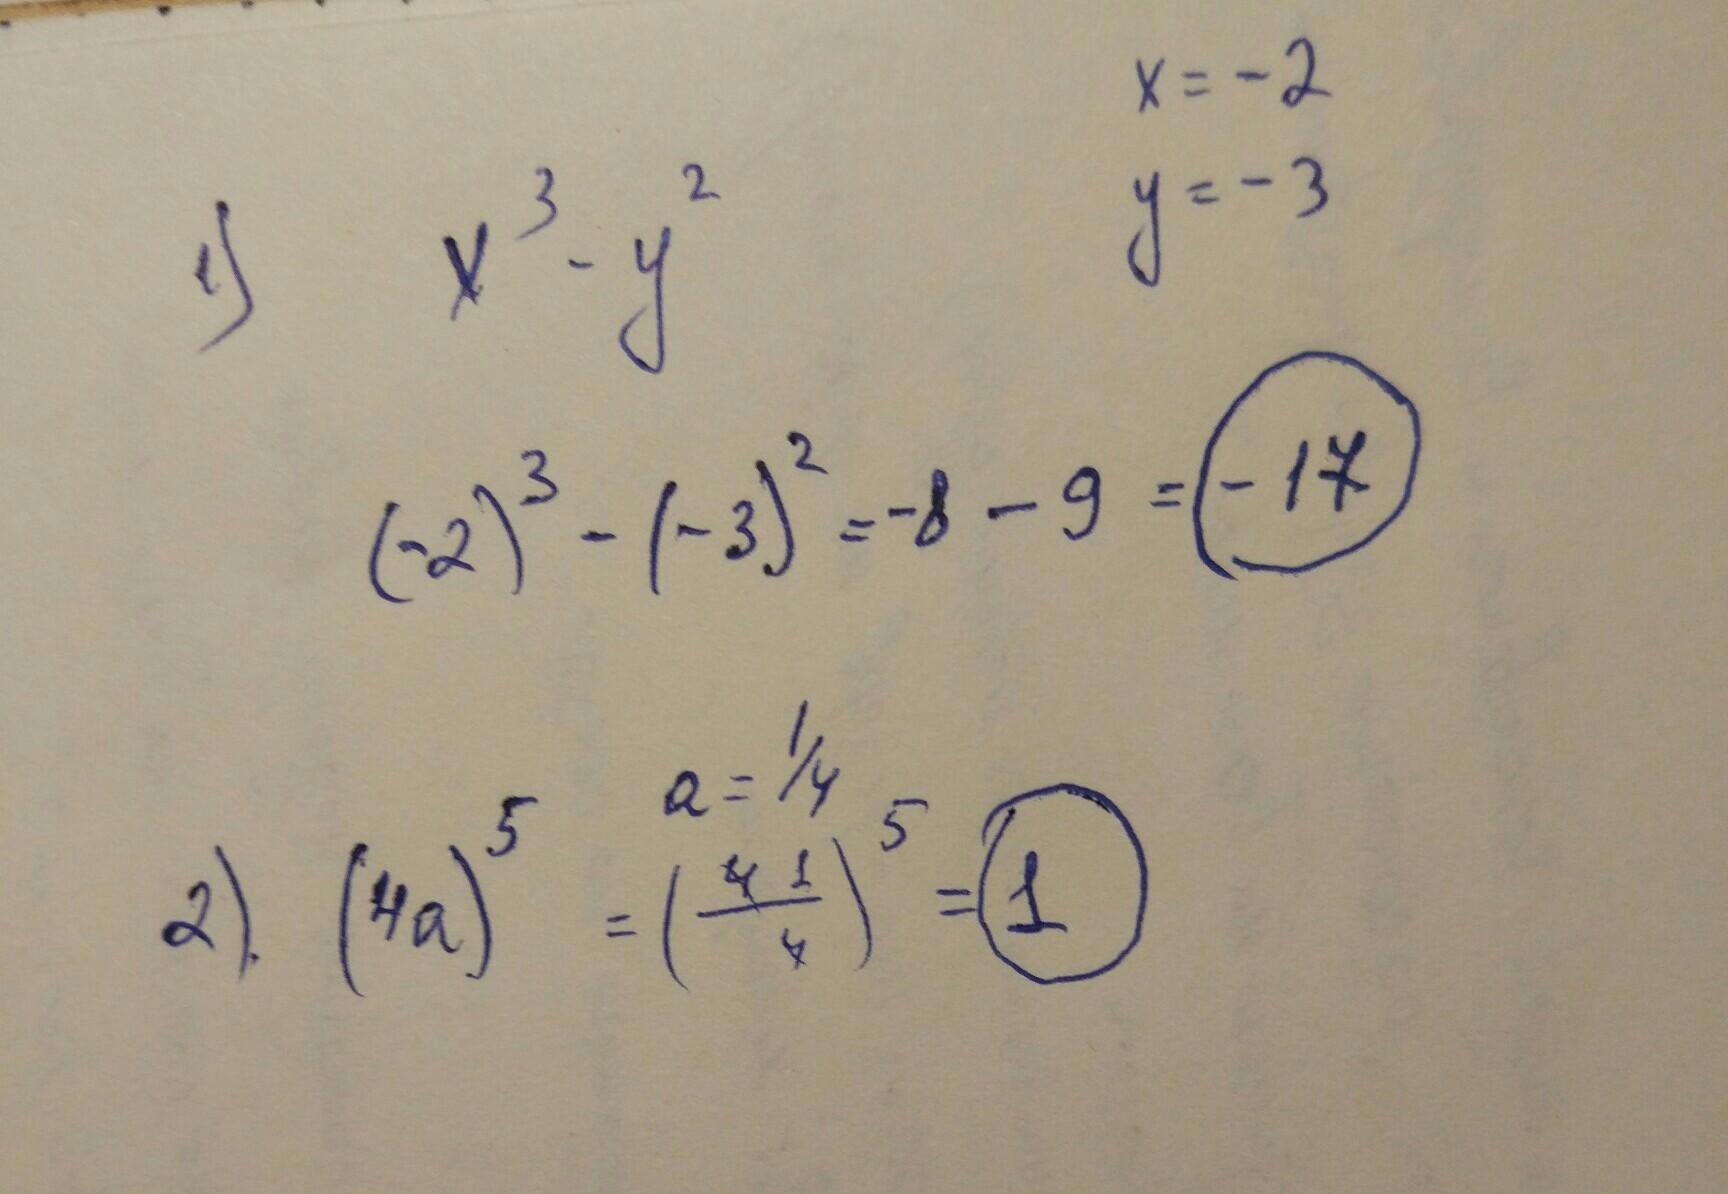 x = -2
y = -3
1) x³ - y²
(-2)³ - (-3)² = -8 - 9 = -17
a = 1/4
2). (4a)⁵ = (4 1/4)⁵ = 1